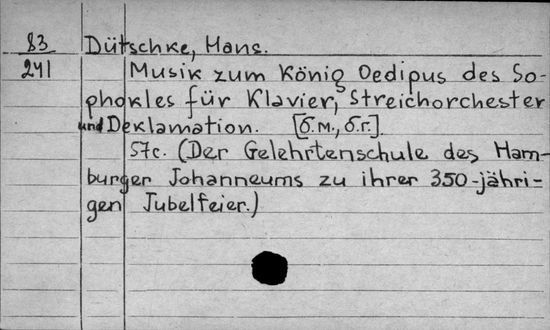 83 Dütschke, Hans.
241 Musik zum König Oedipus des So-
phokles für Klavier, Streichorchester
und Deklamation. [б.м., б.г.].
57с. (Der Gelehrtenschule des Ham-
burger Johanneums zu ihrer 350-jähri-
gen Jubelfeier.)